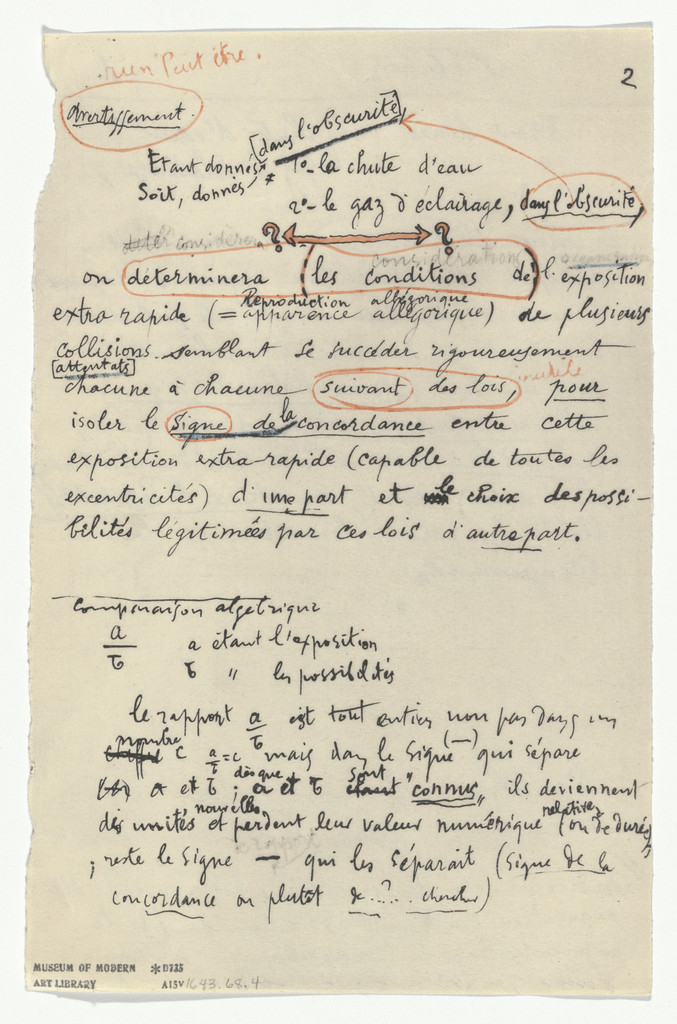 rien peut être.
2
avertissement.
[dans l'obscurité]
Etant donnés 1º- la chute d'eau
Soit, donnés
2º- le gaz d'éclairage, dans l'obscurité,
? ?
considérera considérations
on déterminera (les conditions de) l'exposition
Reproduction allégorique
extra rapide (= apparence allégorique) de plusieurs
collisions semblant se succéder rigoureusement
[attentats]
chacune à chacune suivant des lois, inutile pour
isoler le signe de la concordance entre cette
exposition extra-rapide (capable de toutes les
excentricités) d'une part et le choix des possi-
bilités légitimées par ces lois d'autre part.
Comparaison algébrique
a
b
a étant l'exposition
b " les possibilités
le rapport a/b est tout entier non pas dans un
nombre c a/b = c mais dans le signe (—) qui sépare
a et b ; dès que a et b sont "connus" ils deviennent
des unités nouvelles et perdent leur valeur numérique relative (ou de durée)
; reste le signe — qui les séparait (signe de la
concordance ou plutôt de ...?... chercher)
MUSEUM OF MODERN
ART LIBRARY
*D735
A15V 1643.68.4